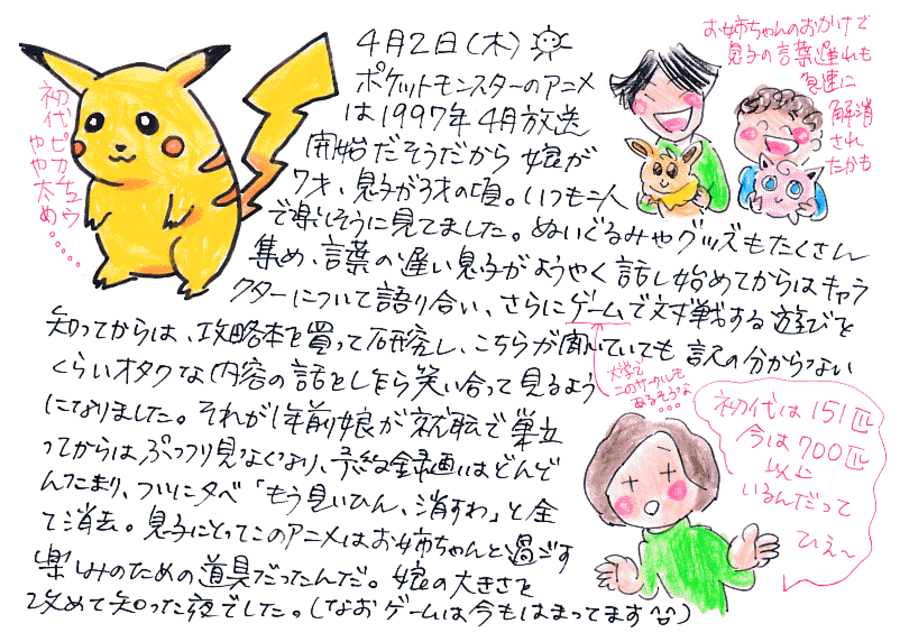 4月2日(木)
ポケットモンスターのアニメ
は1997年4月放送
開始だそうだから娘が
7才、息子が3才の頃。いつも二人
で楽しそうに見てました。ぬいぐるみやグッズもたくさん
集め、言葉の遅い息子がようやく話し始めてからはキャラ
クターについて語り合い、さらにゲームで対戦する遊びを
知ってからは、攻略本を買って研究し、こちらが聞いていても訳の分からない
くらいオタクな内容の話をしながら笑い合って見るよう
になりました。それが1年前娘が就転で巣立
ってからはぷっつり見なくなり、予約録画はどんど
んたまり、ついに夕べ「もう見いひん、消すわ」と全
て消去。息子にとってこのアニメはお姉ちゃんと過ごす
楽しみのための道具だったんだ。娘の大きさを
改めて知った夜でした。(なおゲームは今もはまってます^^)
初代ピカチュウ
やや太め・・・・・
お姉ちゃんのおかげで
息子の言葉遅れも
急速に
解消
され
たかも
大学で
このサークルも
あるそうな
・・・
初代は151匹
今は700匹
以上
いるんだって
ひえ～